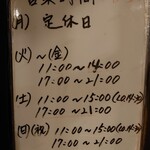 営業時間
(月) 定休日
(火)〜(金)
11:00〜14:00
17:00〜21:00
(土) 11:00〜15:00
17:00〜21:00
(日)(祝) 11:00〜15:00
17:00〜21:00